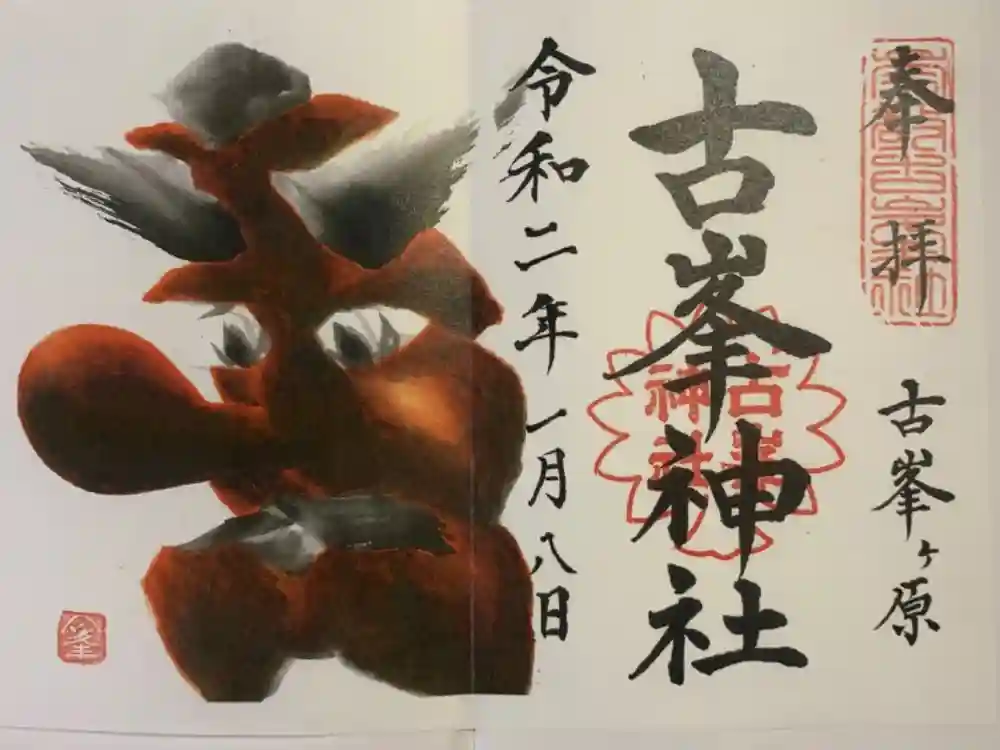 奉拝
古峯ヶ原
古峯神社
古峯神社
令和二年一月八日